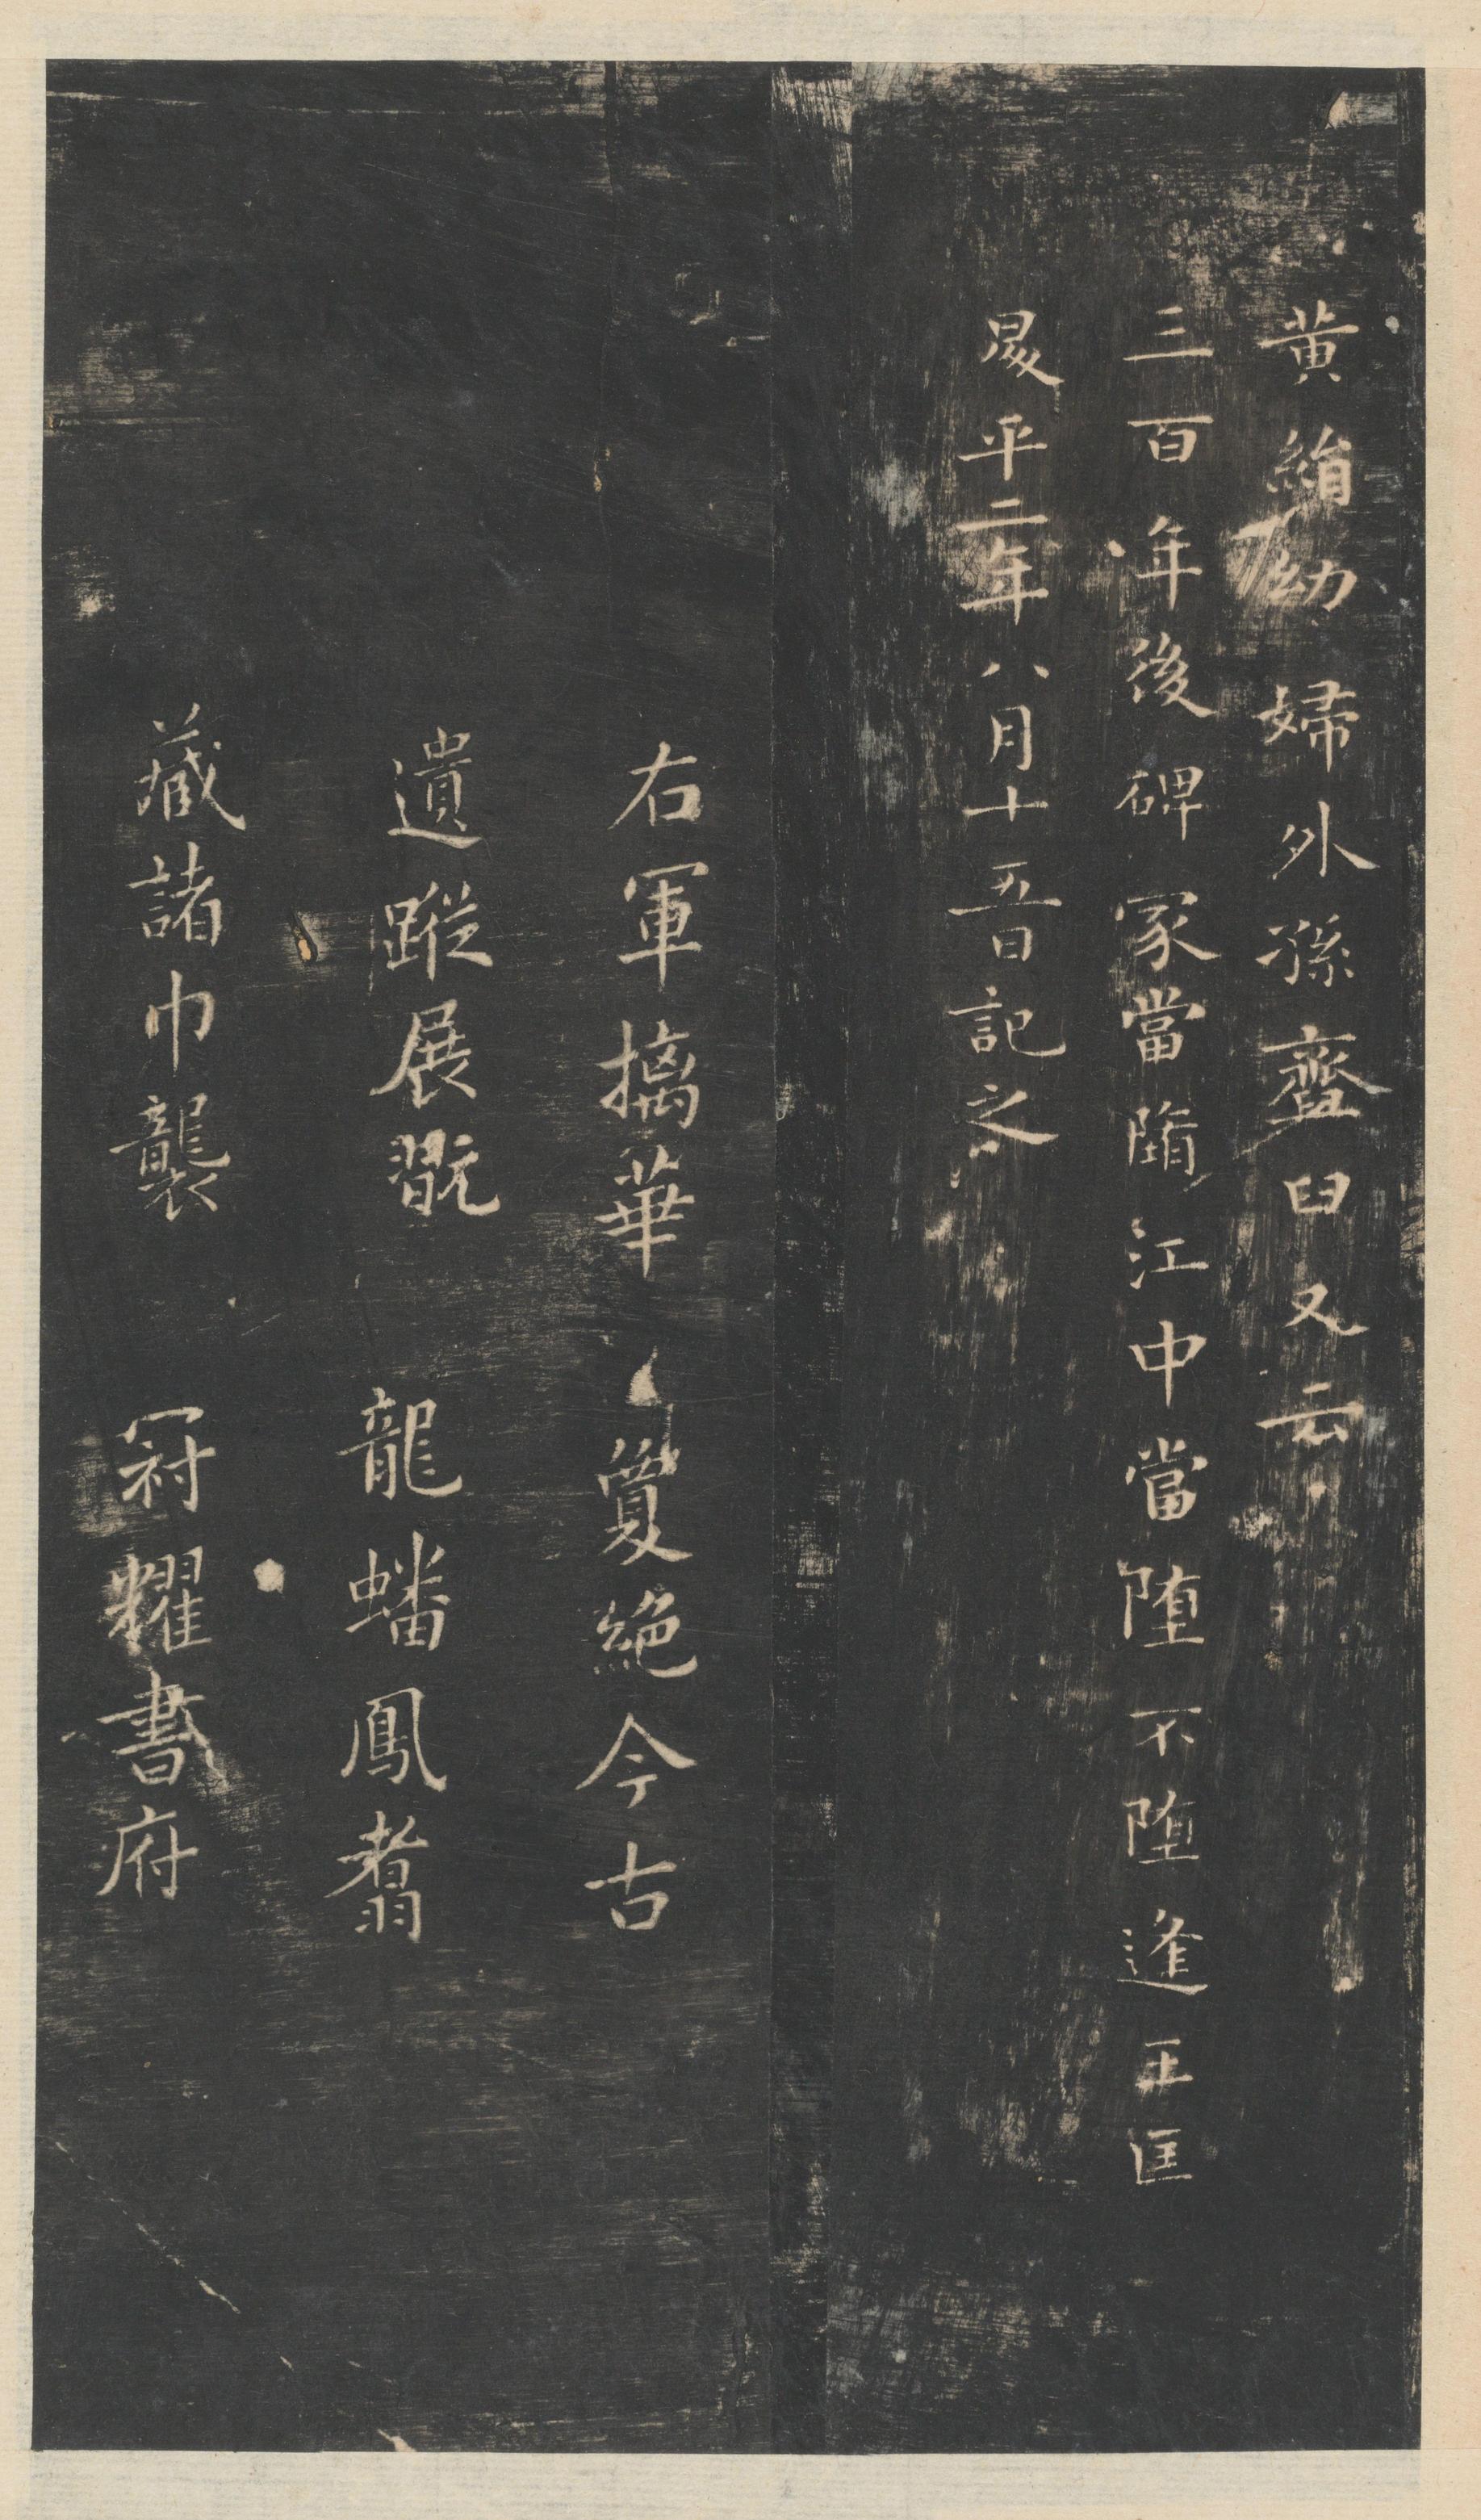 黃絹幼婦外孫齏臼又云
三百年後碑冢當墮江中當墮不墮逢王匡
昇平二年八月十五日記之
右軍摛華 敻絕今古
遺蹤展翫 龍蟠鳳翥
藏諸巾襲 冠耀書府